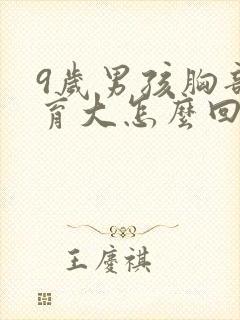 9歲男孩胸部
育大怎麼回
王慶祺